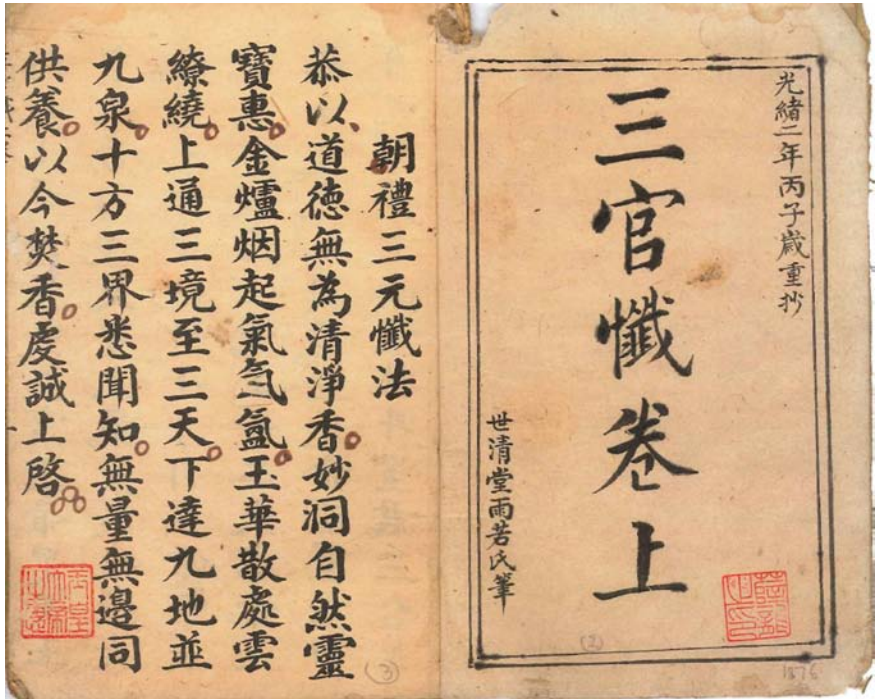 光緒二年丙子歲重抄
三官懺卷上
世清堂雨若氏筆
(2)
1876
朝禮三元懺法
恭以道德無為清淨香妙洞自然靈
寶惠金爐烟起氣氤氳玉華散處雲
繚繞上通三境至三天下達九地並
九泉十方三界悉聞知無量無邊同
供養以今焚香虔誠上啓
(3)